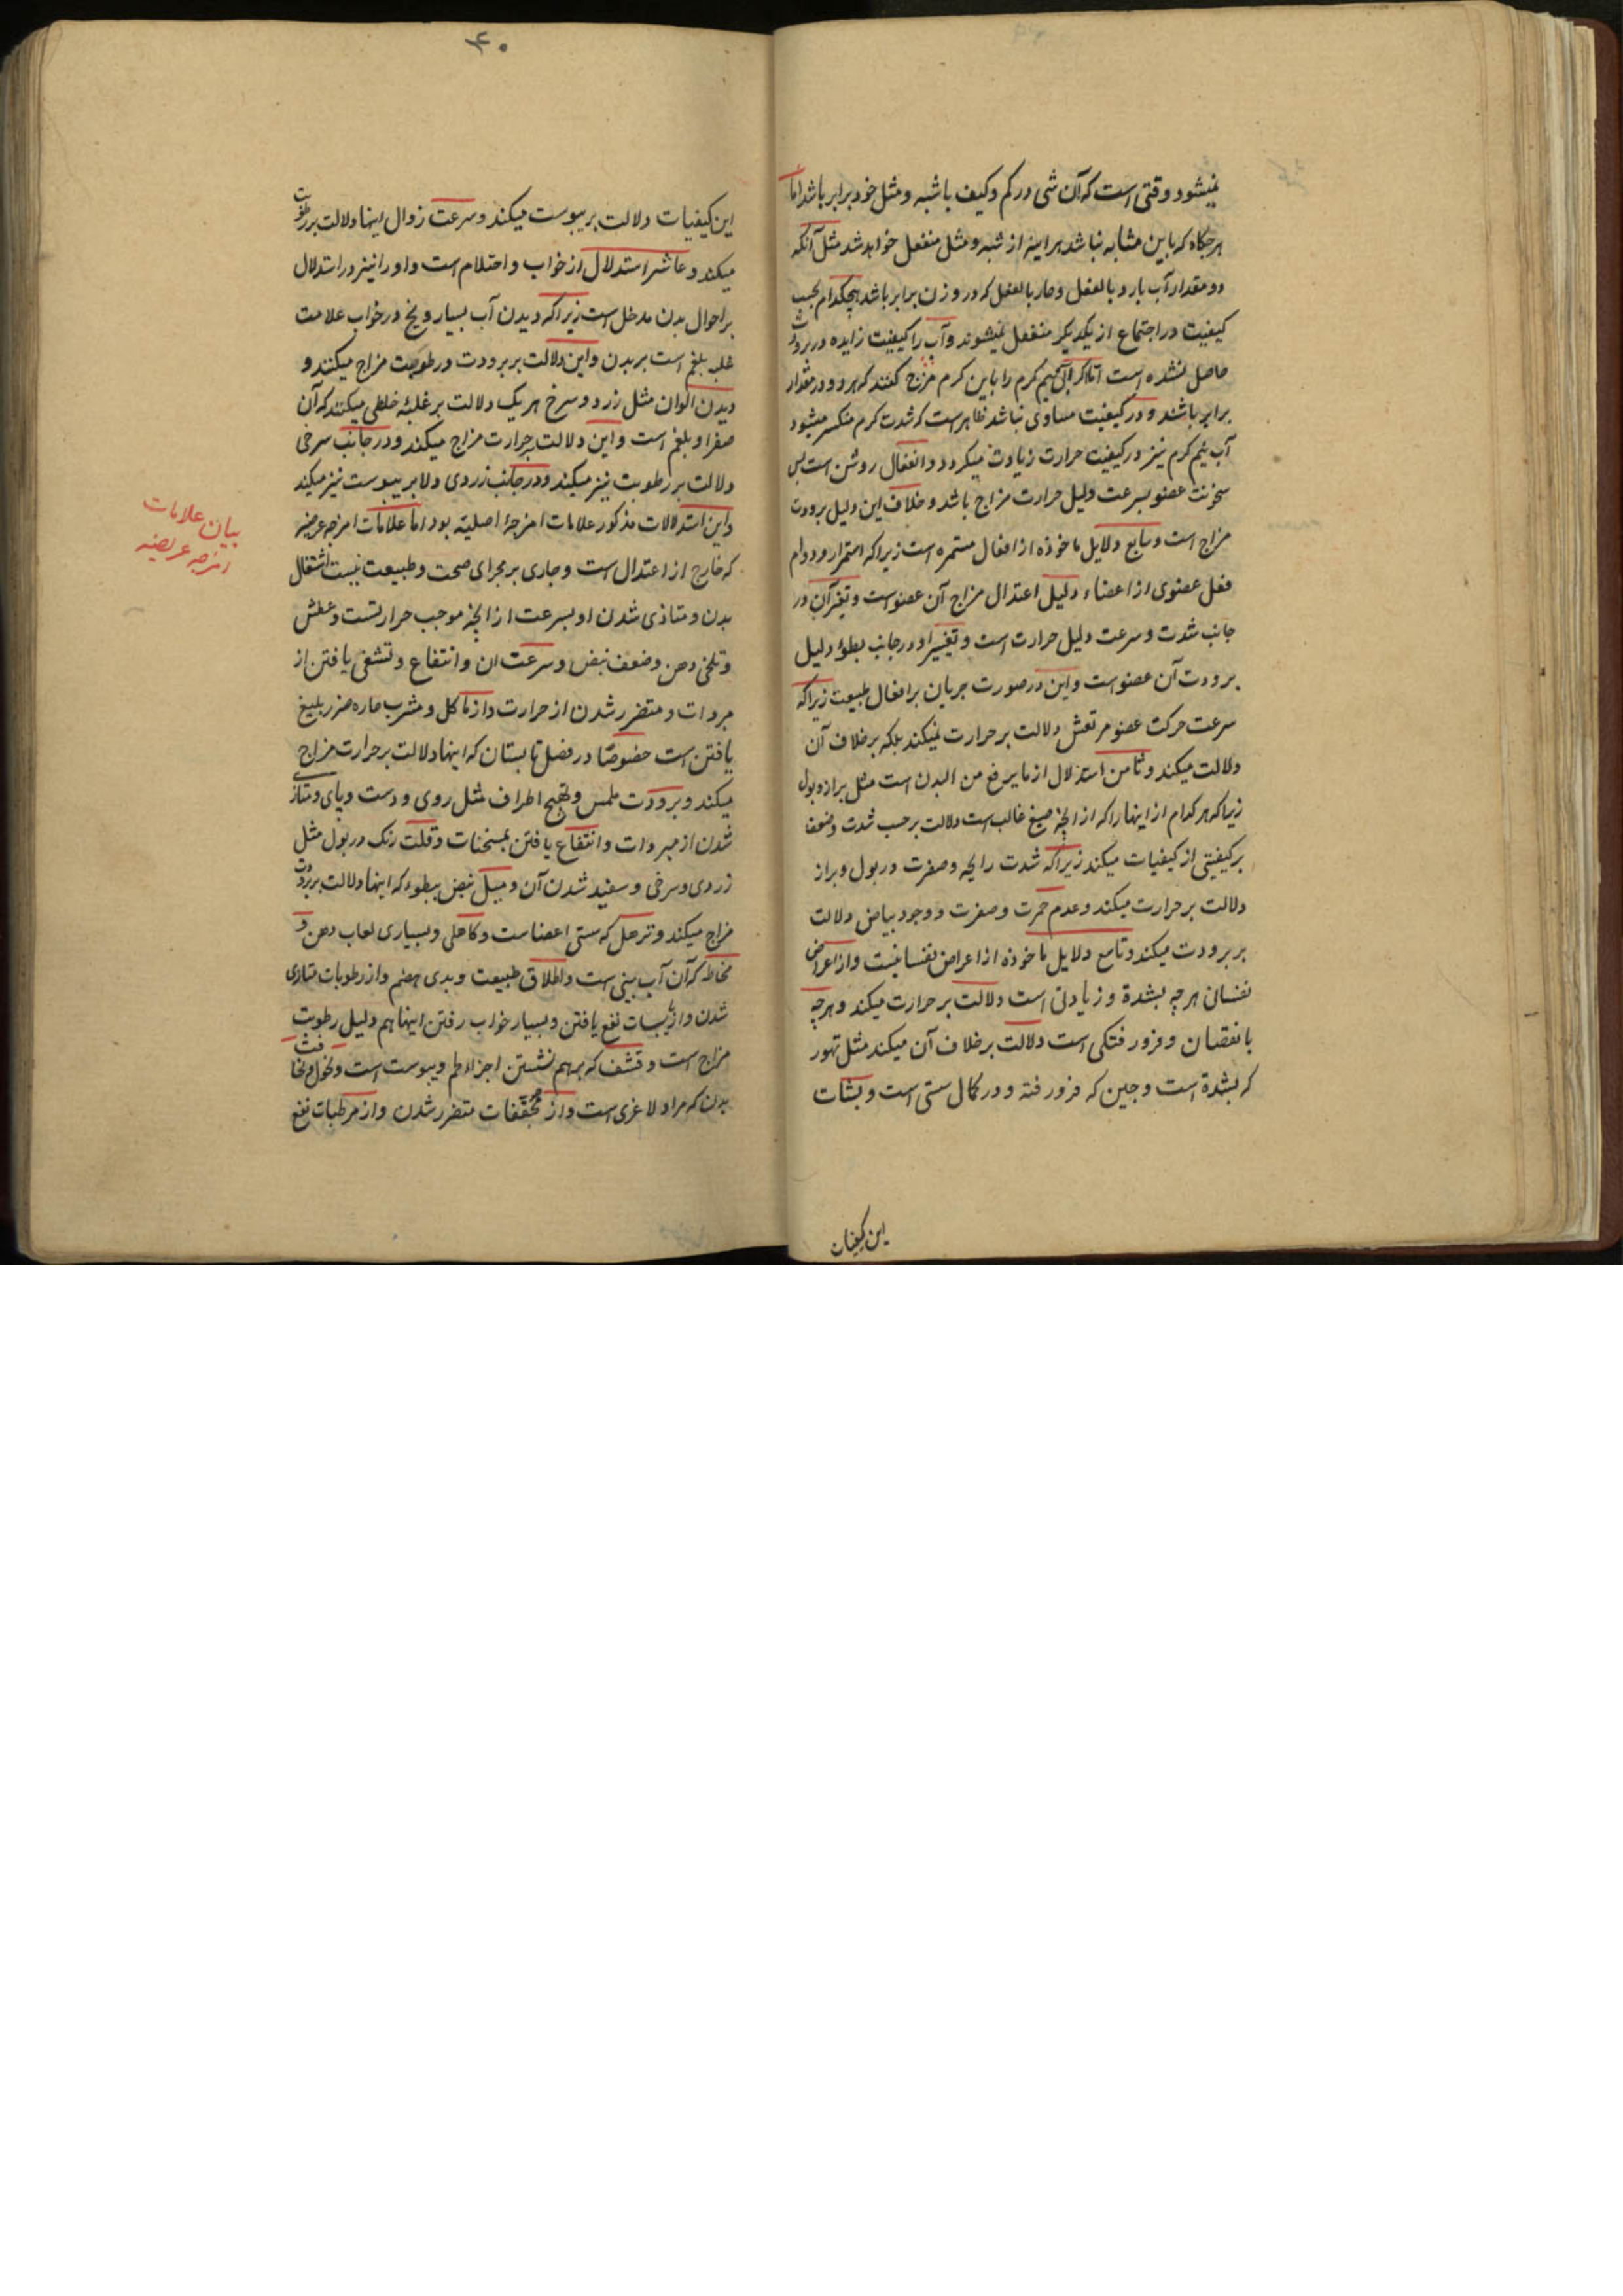 نمیشود وقتی است که آن شی در کم وکیف با شبه ومثل خود برابر باشد اما
هرجکاه که باین مشابه نباشد هر اینه از شبه ومثل منفعل خواهد شد مثل آنکه
دو مقدار آب بارد بالفعل وحار بالفعل که در وزن برابر باشد هیچکدام بحسب
کیفیت در اجتماع از یکدیکر منفعل نمیشوند وآب را کیفیت زایده در برودت
حاصل نشده است اما اکر آبی نیم کرم را باین کرم مزج کنند که هر دو در مقدار
برابر باشند و در کیفیت مساوی نباشد ظاهرست که شدت کرم منکسر میشود
آب نیم کرم نیز در کیفیت حرارت زیادت میکردد وانفعال روشن است پس
سخونت عضو بسرعت دلیل حرارت مزاج باشد وخلاف این دلیل برودت
مزاج است وسابع دلایل ماخوذه از افعال مستمره است زیرا که استمرار ودوام
فعل عضوی از اعضاء دلیل اعتدال مزاج آن عضو است وتغیر آن در
جانب شدت وسرعت دلیل حرارت است وتغییر او در جانب بطؤ دلیل
برودت آن عضو است واین در صورت جریان بر افعال طبیعت زیرا که
سرعت حرکت عضو مرتعش دلالت بر حرارت نمیکند بلکه بر خلاف آن
دلالت میکند وثامن استدلال از ما یرفع من البدن است مثل براز وبول
زیرا که هر کدام از اینها را که از انچه صبغ غالب است دلالت بر حسب شدت وضعف
بر کیفیتی از کیفیات میکند زیرا که شدت رایحه وصفرت در بول وبراز
دلالت بر حرارت میکند وعدم حمرت وصفرت ووجود بیاض دلالت
بر برودت میکند وتاسع دلایل ماخوذه از اعراض نفسانیست واز اعراض
نفسانی هر چه بشدة وزیادتی است دلالت بر حرارت میکند وهر چه
با نقصان وفرو رفتکی است دلالت بر خلاف آن میکند مثل تهور
که بشدة است وجبن که فرو رفته ودر کمال سستی است وبثبات
این کیفیات
۴۰
این کیفیات دلالت بر یبوست میکند وسرعت زوال اینها دلالت بر رطوبت
میکند وعاشر استدلال از خواب واحتلام است واو را نیز در استدلال
بر احوال بدن مدخل است زیرا که دیدن آب بسیار ویخ در خواب علامت
غلبه بلغم است بر بدن واین دلالت بر برودت ورطوبت مزاج میکنند و
دیدن الوان مثل زرد وسرخ هر یک دلالت بر غلبهٔ خلطی میکنند که آن
صفرا وبلغم است واین دلالت بر حرارت مزاج میکند ودر جانب سرخی
دلالت بر رطوبت نیز میکند ودر جانب زردی دلا بر یبوست نیز میکند
واین استدلالات مذکور علامات امزجهٔ اصلیه بود اما علامات امزجه عرضیه
که خارج از اعتدال است وجاری بر مجرای صحت وطبیعت نیست اشتعال
بدن ومتاذی شدن او بسرعت از انچه موجب حرارتست وعطش
وتلخی دهن وضعف نبض وسرعت ان وانتفاع وتشفی یافتن از
مبردات ومتضرر شدن از حرارت واز ماکل ومشرب حاره ضرر بلیغ
یافتن است خصوصا در فصل تابستان که اینها دلالت بر حرارت مزاج
میکند وبرودت ملمس وتهبج اطراف مثل روی ودست وپای ومتاذی
شدن از مبردات وانتفاع یافتن بمسخنات وقلت رنک در بول مثل
زردی وسرخی وسفید شدن آن ومیل نبض ببطوء که اینها دلالت بر برودت
مزاج میکند وترهل که سستی اعضاست وکاهلی وبسیاری لعاب دهن و
مخاط که آن آب بینی است واطلاق طبیعت وبدی هضم واز رطوبات متاذی
شدن واز یابسات نفع یافتن وبسیار خواب رفتن اینها هم دلیل رطوبت
مزاج است وقشف که بر هم نشستن اجزاء لحم ویبوست است ونحول ونحافت
بدن که مراد لاغری است واز مجففات متضرر شدن واز مرطبات نفع
بیان علامات
امزجه عرضیه